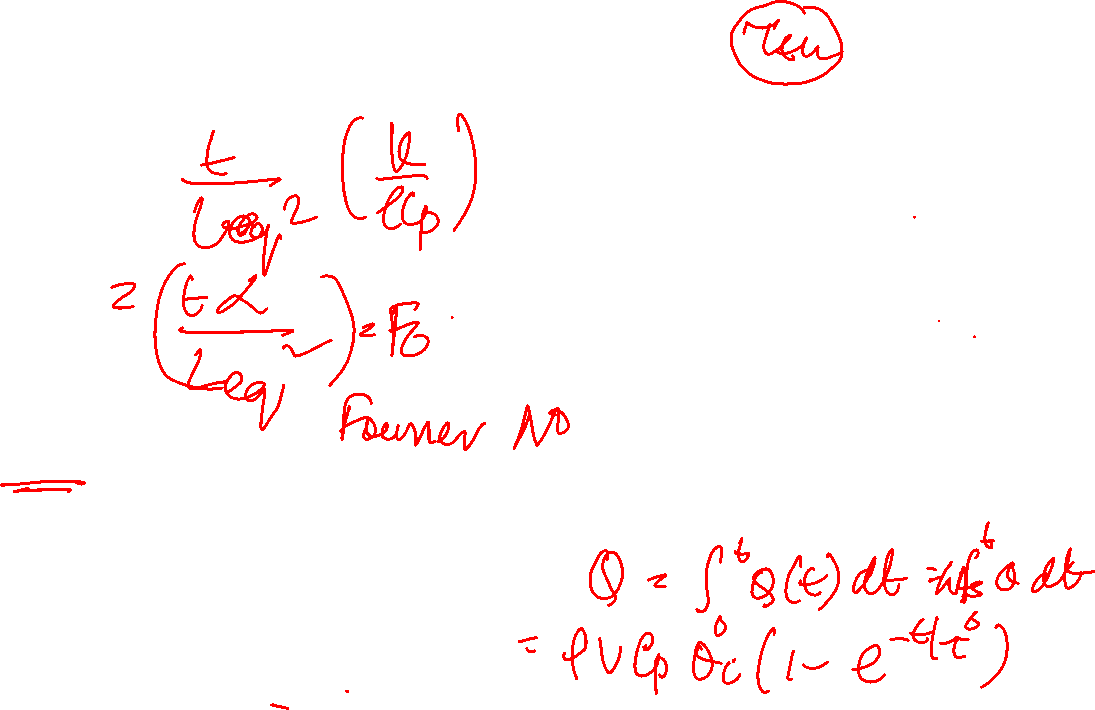 t / Leq² (k / ρCp)
= (tα / Leq²) = Fo
Fourier No
Q = ∫₀ᵗ Q(t) dt = hAs ∫₀ᵗ θ dt
= ρVCp θi (1 - e^(-t/τ))